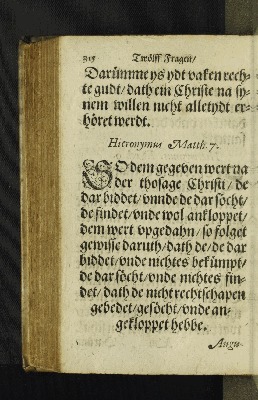 318 Twölff Fragen/
Darümme ys ydt vaken rech-
te gudt/ dath ein Christe na sy-
nem willen nicht alletydt er-
höret werdt.
Hieronymus Matth. 7.
SO dem gegeven wert na
der thosage Christi/ de
dar biddet/ vnnde de dar söcht/
de findet/ vnde wol ankloppet/
dem wert vpgedahn/ so folget
gewisse daruth/ dath de/ de dar
biddet/ vnde nichtes bekümpt/
de dar söcht/ vnde nichtes fin-
det/ dath de nicht rechtschapen
gebedet/ gesöcht/ vnde an-
gekloppet hebbe.
Augu-